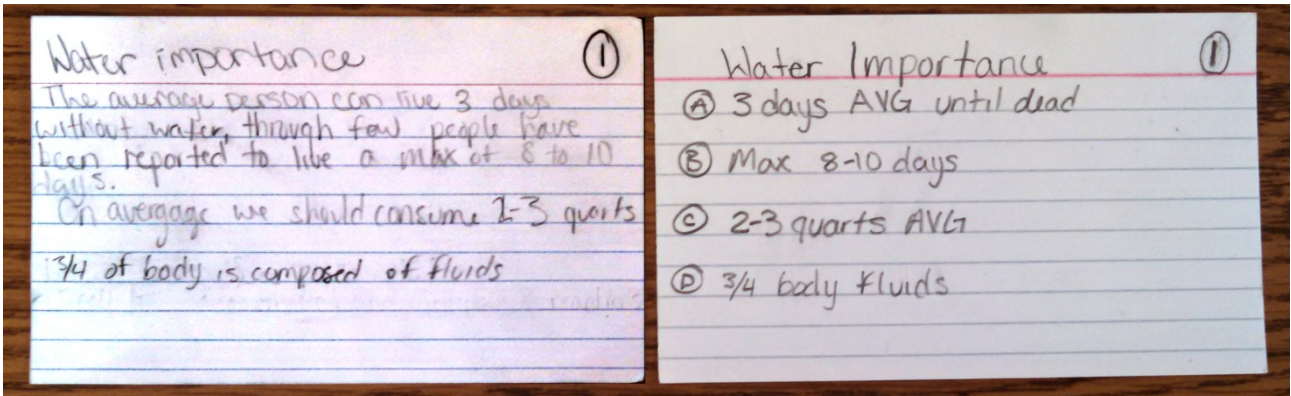 Water importance 1
The average person can live 3 days
without water, through few people have
been reported to live a max of 8 to 10
days.
On avergage we should consume 2-3 quarts
3/4 of body is composed of fluids
Water Importance 1
A 3 days AVG until dead
B Max 8-10 days
C 2-3 quarts AVG
D 3/4 body fluids